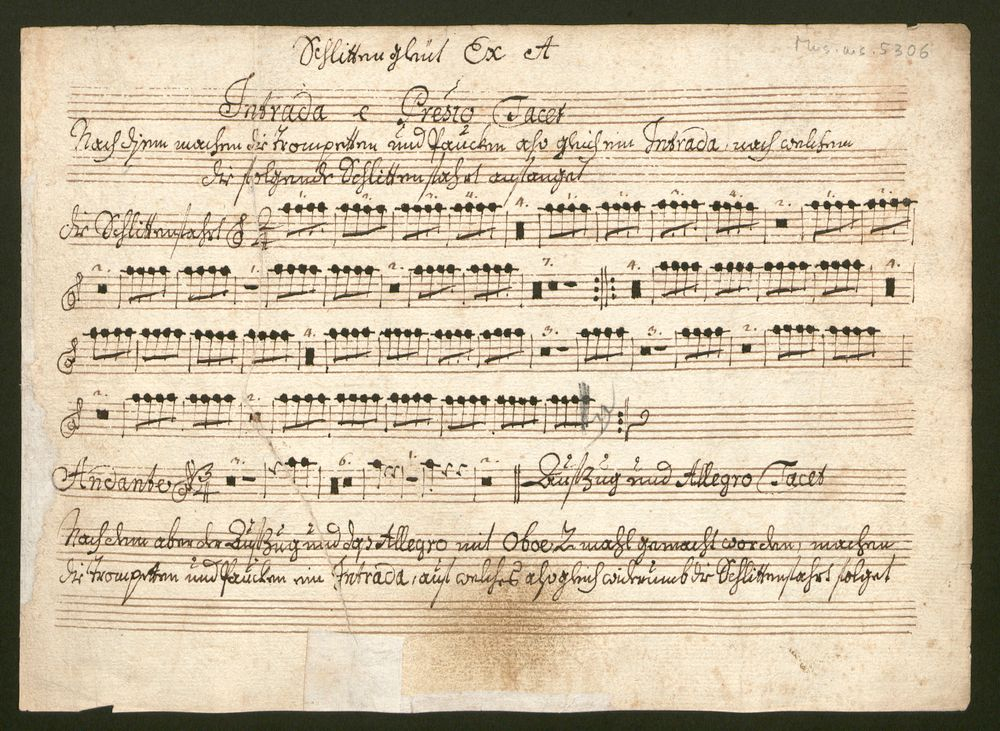 Schlittengleüt Ex A
Mus. ms. 5306
Intrada e Presto Tacet
Nach disem machen die Trompetten und Paucken also gleich ein Intrada, nach welchem
die folgende Schlittenfahrt anfanget
die Schlittenfahrt 2/4 4. 2.
2. 1. 2. 7. 4. 4.
4. 3. 3. 2.
2. 2.
Andante 3/4 3. 6. 1. 2. Auffzug und Allegro Tacet
Nachdem aber der Auffzug und das Allegro mit Oboe 2 mahl gemacht worden, machen
die Trompetten und Paucken ein Intrada, auf welches also gleich widerumb die Schlittenfahrt folget